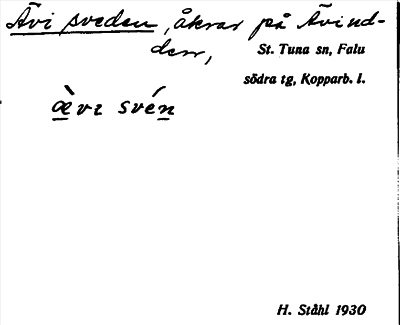 Ävi sveden, åkrar på Ävind-
den,
St. Tuna sn, Falu
södra tg, Kopparb. l.
æ̀vi svén
H. Ståhl 1930